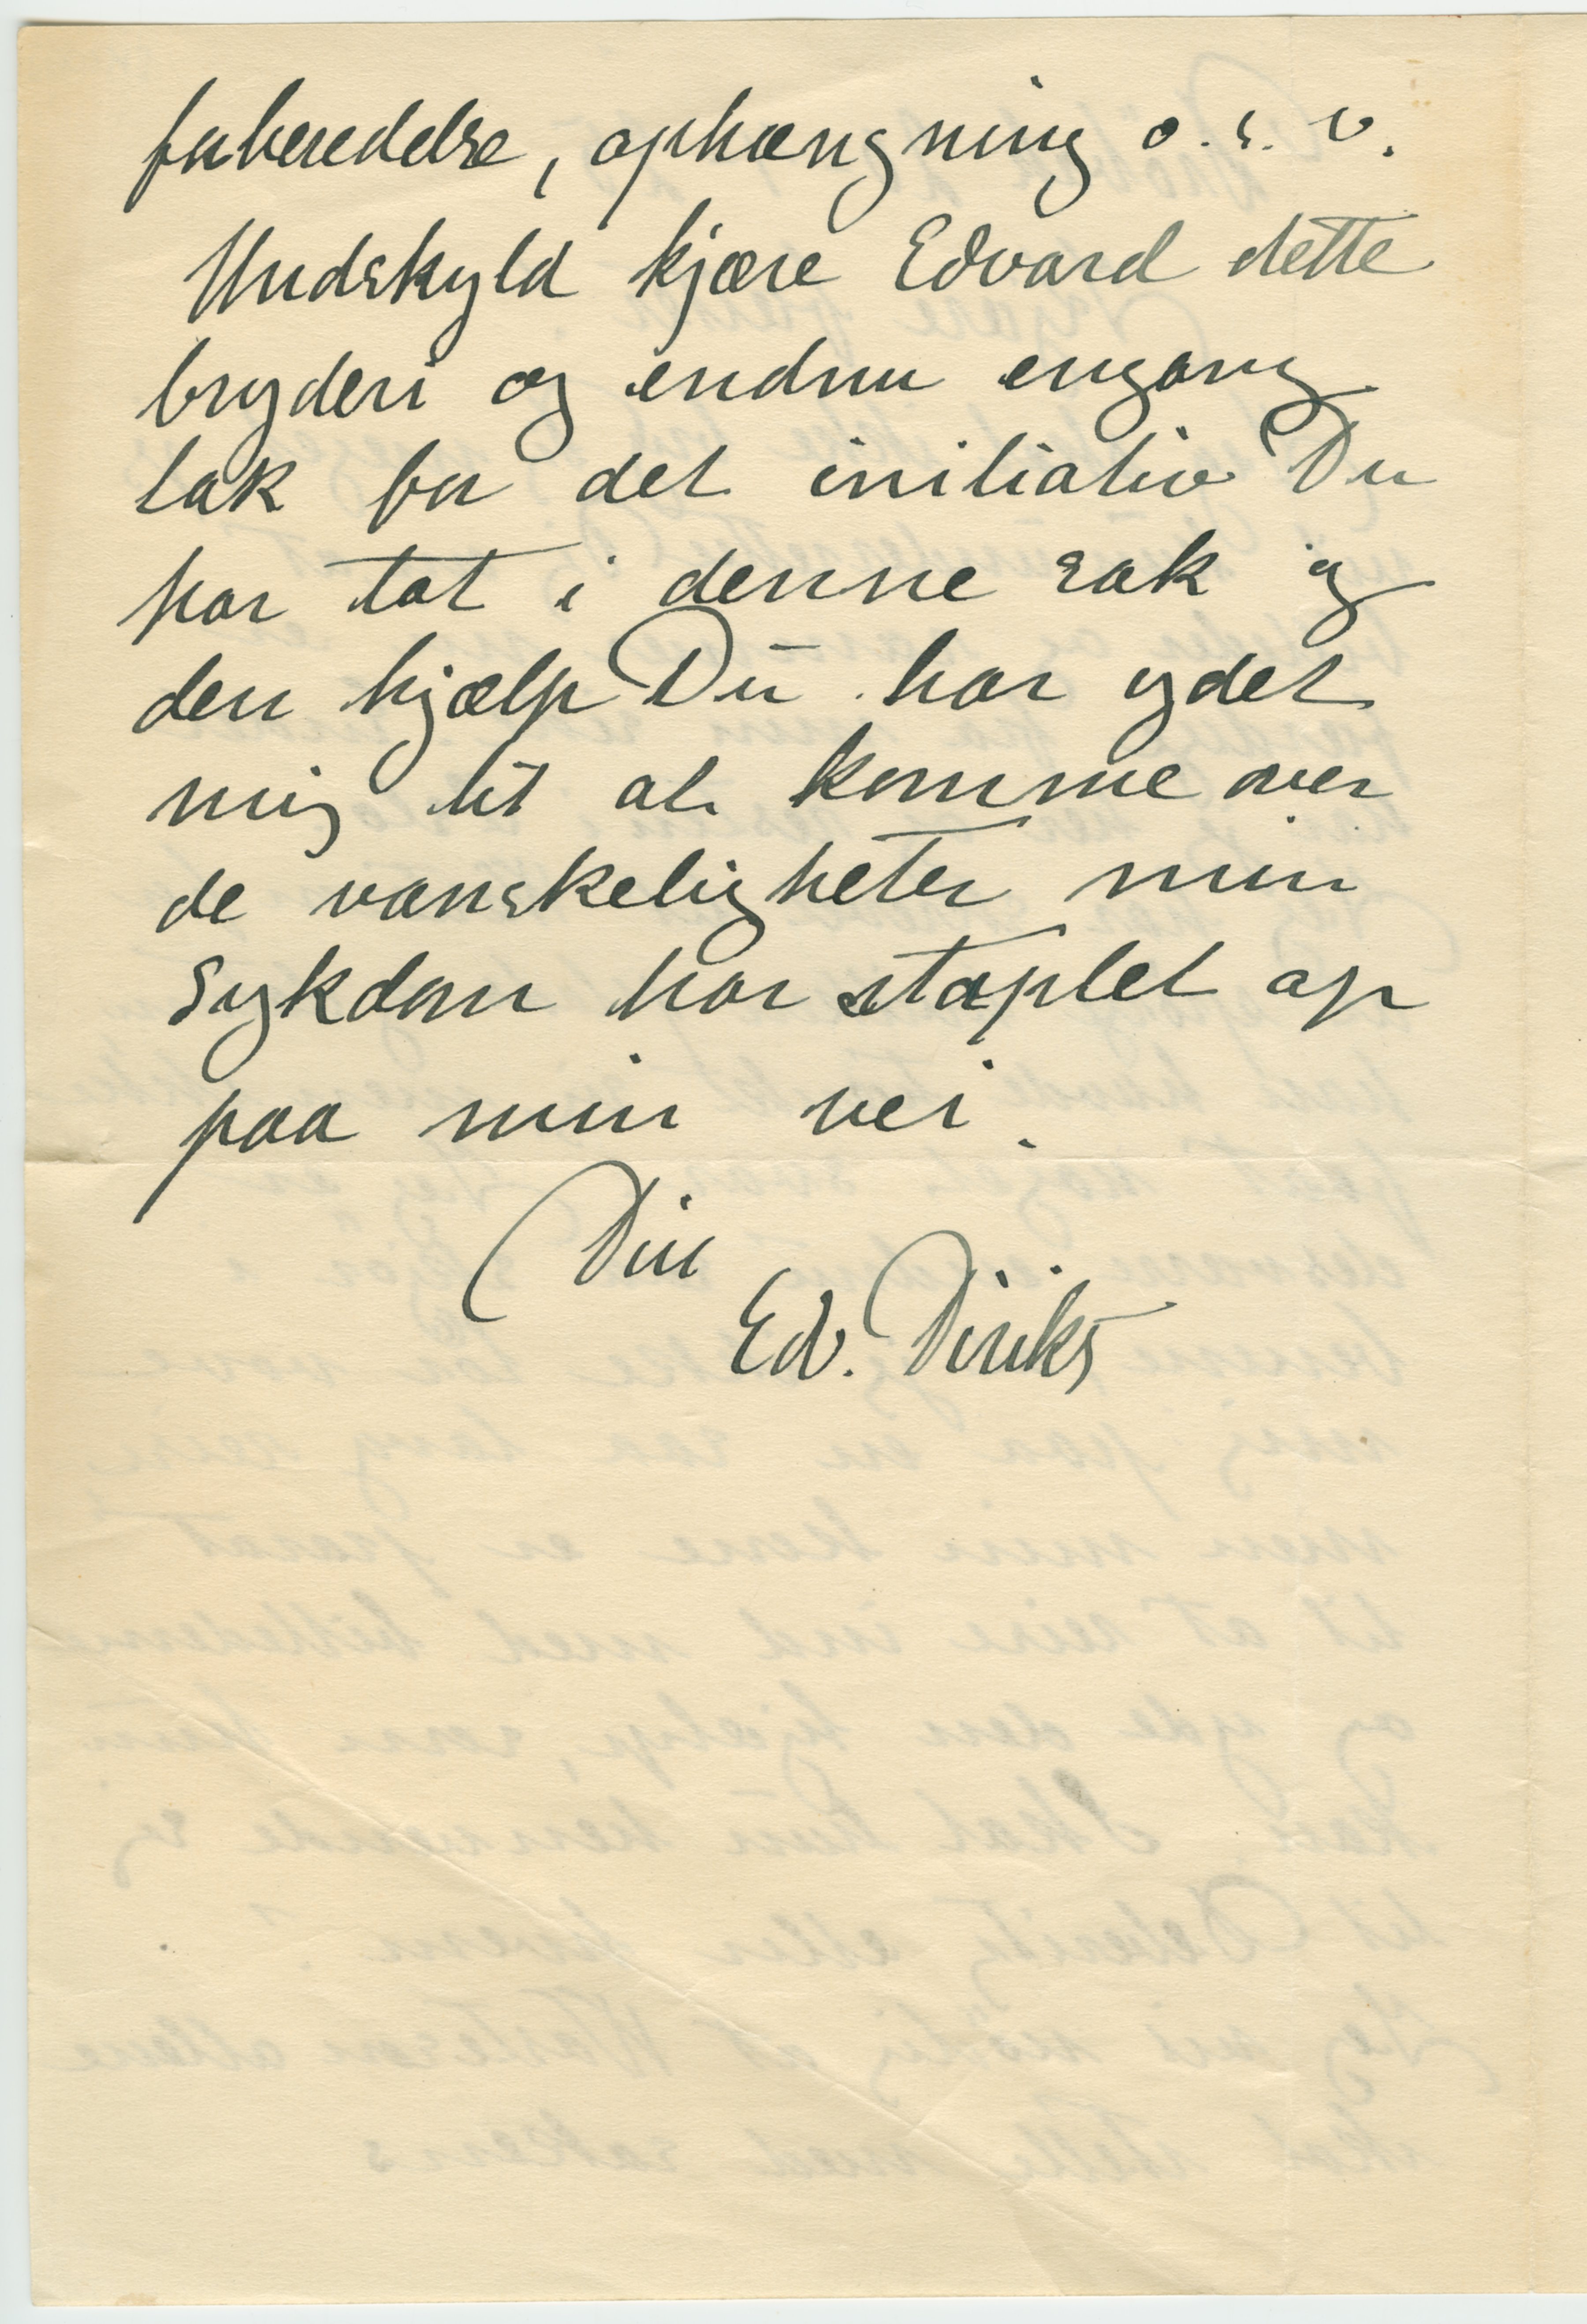 forberedelse, ophængning o.s.v.
Undskyld kjære Edvard dette
bryderi og endnu engang
tak for det initiativ Du
har tat i denne sak og
den hjælp Du har ydet
mig til at komme over
de vanskeligheter min
sykdom har staplet op
paa min vei.
Din
Ed. Diriks